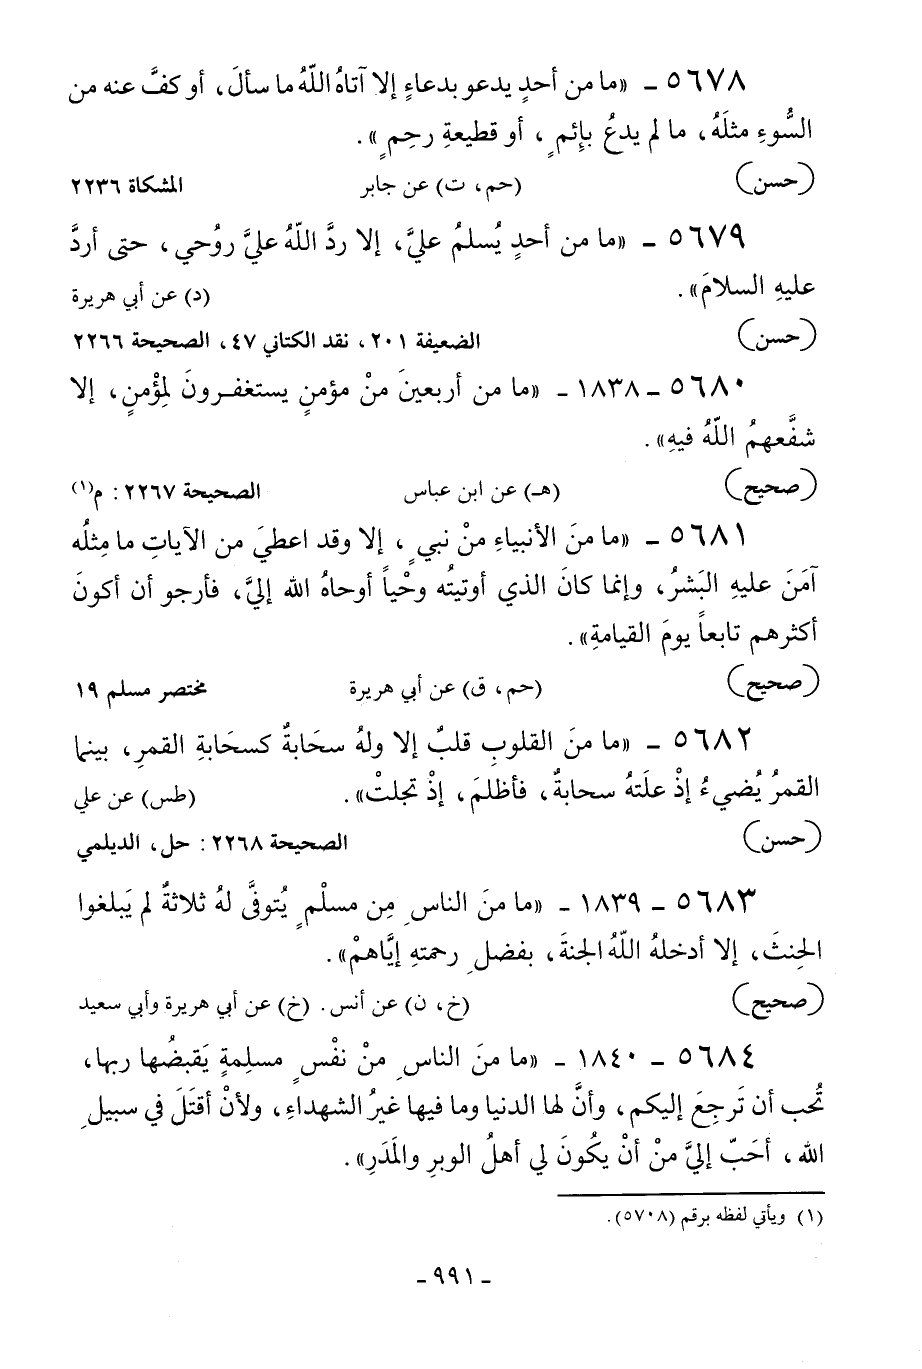 ٥٦٧٨ - «ما من أحدٍ يدعو بدعاءٍ إلا آتاهُ اللّهُ ما سألَ، أو كفَّ عنه من
السُّوءِ مثلَهُ، ما لم يدعُ بإِثمٍ، أو قطيعةِ رحِمٍ».
(حسن) (حم، ت) عن جابر المشكاة ٢٢٣٦
٥٦٧٩ - «ما من أحدٍ يُسلمُ عليَّ، إلا ردَّ اللّهُ عليَّ روُحي، حتى أردَّ
عليهِ السلامَ». (د) عن أبي هريرة
(حسن) الضعيفة ٢٠١، نقد الكتاني ٤٧، الصحيحة ٢٢٦٦
٥٦٨٠ - ١٨٣٨ - «ما من أربعينَ منْ مؤمنٍ يستغفرونَ لِمُؤْمنٍ، إلا
شفَّعهمُ اللّهُ فيهِ».
(صحيح) (هـ) عن ابن عباس الصحيحة ٢٢٦٧: م(١)
٥٦٨١ - «ما منَ الأنبياءِ منْ نبيٍ، إلا وقد اعطيَ من الآياتِ ما مِثلُه
آمَنَ عليهِ البَشرُ، وإنما كانَ الذي أوتيتُه وحْياً أوحاهُ الله إليَّ، فأرجو أن أكونَ
أكثرهم تابعاً يومَ القيامةِ».
(صحيح) (حم، ق) عن أبي هريرة مختصر مسلم ١٩
٥٦٨٢ - «ما منَ القلوبِ قلبٌ إلا ولهُ سحَابةٌ كسحَابةِ القمرِ، بينما
القمرُ يُضيءُ إذْ علَتهُ سحابةٌ، فأظلمَ، إذْ تجلتْ». (طس) عن علي
(حسن) الصحيحة ٢٢٦٨: حل، الديلمي
٥٦٨٣ - ١٨٣٩ - «ما منَ الناسِ مِن مسلْمٍ يُتوفَّى لهُ ثلاثةٌ لم يَبلغوا
الحِنثَ، إلا أدخلهُ اللّهُ الجنةَ، بفضلِ رحمتهِ إيَّاهمْ».
(صحيح) (خ، ن) عن أنس. (خ) عن أبي هريرة وأبي سعيد
٥٦٨٤ - ١٨٤٠ - «ما منَ الناسِ منْ نفْسٍ مسلِمةٍ يَقبضُها ربها،
تُحب أن تَرجِعَ إليكم، وأنَّ لها الدنيا وما فيها غيرُ الشهداءِ، ولأنْ أقتَلَ في سبيلِ
الله، أحَبّ إليَّ منْ أنْ يكُونَ لي أهلُ الوبرِ والمَدَرِ».
(١) ويأتي لفظه برقم (٥٧٠٨).
- ٩٩١ -